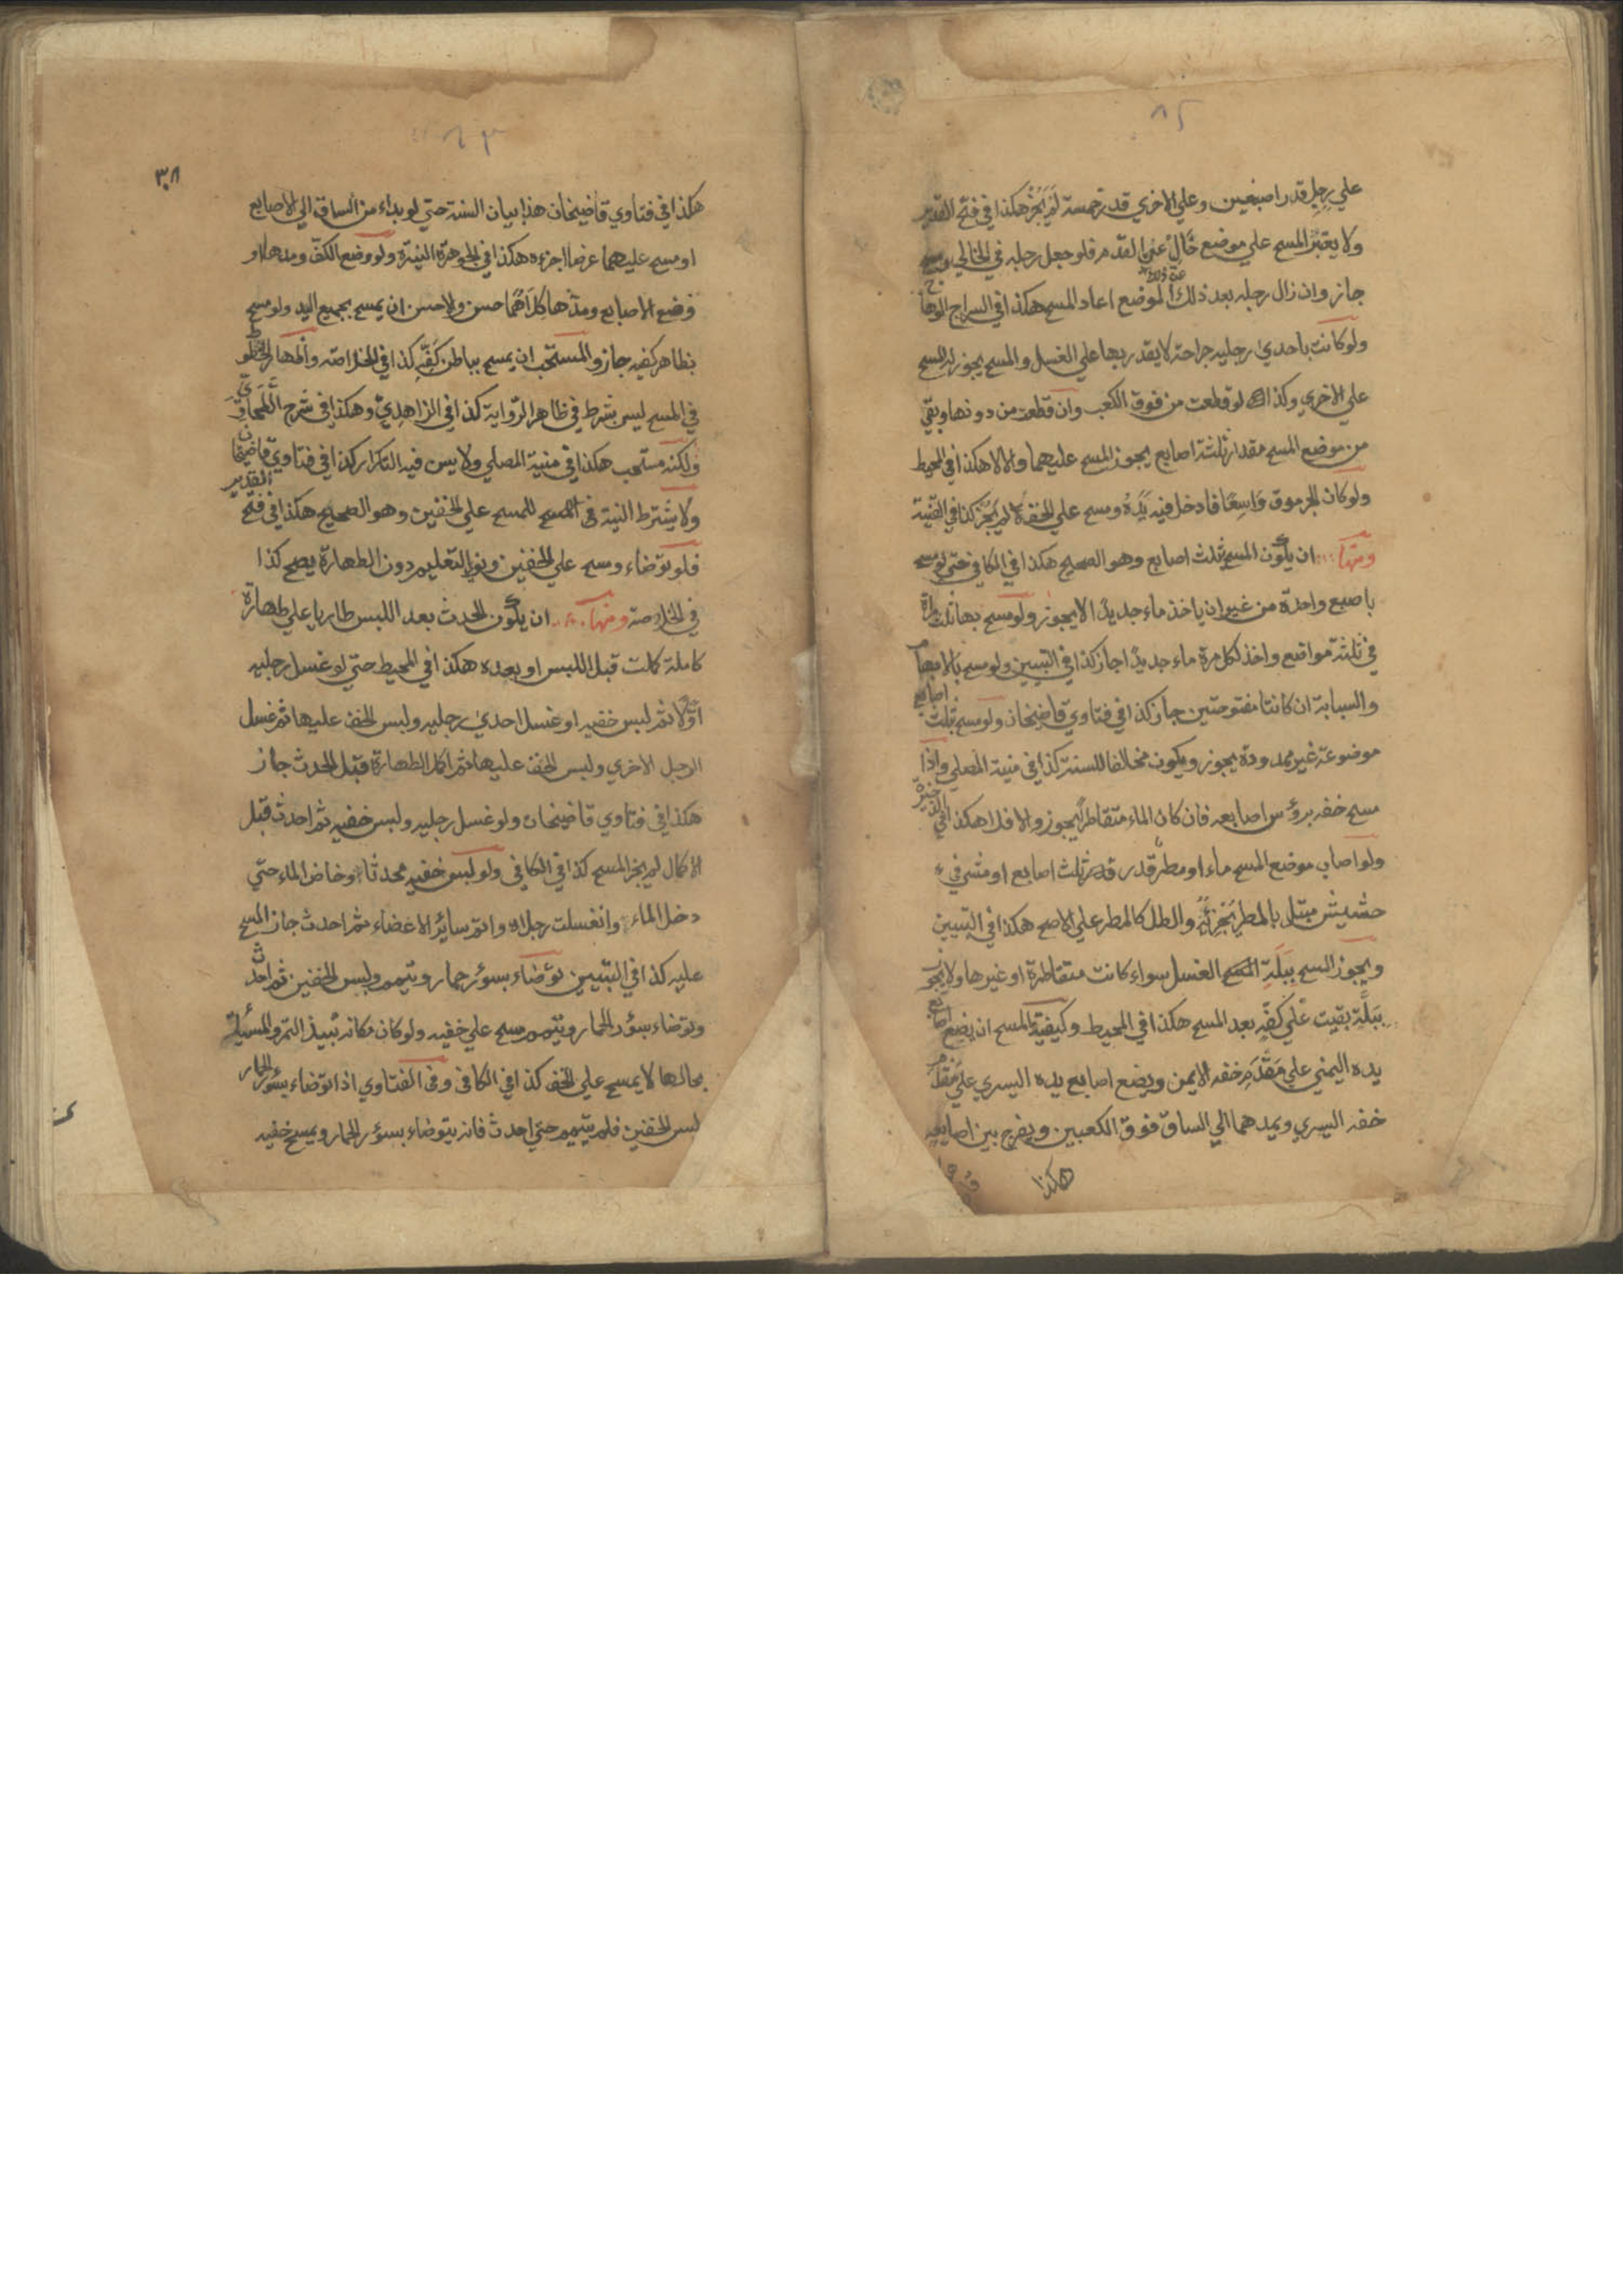 على رجل قدر اصبعين وعلي الاخري قدر خمسة لم يجز هكذا في فتح القدير
ولا يعتبر المسح علي موضع خال عن القدم فلو جعل رجله في الخالي ومسح
جاز وان زال رجله بعد ذلك الموضع اعاد المسح هكذا في السراج الوهاج
عن ذلك
ولو كانت باحدي رجليه جراحة لا يقدر بها علي الغسل والمسح يجوز له المسح
علي الاخري وكذا لو قطعت من فوق الكعب وان قطعت من دونها وبقي
من موضع المسح مقدار ثلثة اصابع يجوز المسح عليهما والا لا هكذا في المحيط
ولو كان الجرموق واسعا فادخل فيه يده ومسح علي الخف لم يجز كذا في القنية
ومنها ان يكون المسح بثلث اصابع وهو الصحيح هكذا في الكافي حتي لو مسح
باصبع واحدة من غير ان ياخذ ماء جديدا لا يجوز ولو مسح بها ثلث مراة
في ثلثة مواضع واخذ لكل مرة ماء جديدا جاز كذا في التبيين ولو مسح بالابهام
والسبابة ان كانتا مفتوحتين جاز كذا في فتاوي قاضيخان ولو مسح بثلث اصابع
موضوعة غير ممدودة يجوز ويكون مخالفا للسنة كذا في منية المصلي واذا
مسح خفه برؤس اصابعه فان كان الماء متقاطرا يجوز والا فلا هكذا في الذخيرة
ولو اصاب موضع المسح ماء او مطر قدر ثلث اصابع او مشي في
حشيش مبتل بالمطر يجزئه والطل كالمطر علي الاصح هكذا في التبيين
ويجوز المسح ببلة الغسل سواء كانت متقاطرة او غيرها ولا يجوز
ببلة بقيت علي كفه بعد المسح هكذا في المحيط وكيفية المسح ان يضع اصابع
يده اليمني علي مقدم خفه الايمن ويضع اصابع يده اليسري علي مقدم
خفه اليسري ويمدهما الي الساق فوق الكعبين ويفرج بين اصابعه
هكذا
٣٨
هكذا في فتاوي قاضيخان هذا بيان السنة حتي لو بداء من الساق الي الاصابع
او مسح عليهما عرضا اجزءه هكذا في الجوهرة النيرة ولو وضع الكف ومدها او
وضع الاصابع ومدها كلاهما حسن والاحسن ان يمسح بجميع اليد ولو مسح
بظاهر كفيه جاز والمستحب ان يمسح بباطن كفه كذا في الخلاصة واظهار الخطوط
في المسح ليس بشرط في ظاهر الرواية كذا في الزاهدي وهكذا في شرح الطحاوي
ولكنه مستحب هكذا في منية المصلي ولا يسن فيه التكرار كذا في فتاوي قاضيخان
ولا يشترط النية في المسح للمسح علي الخفين وهو الصحيح هكذا في فتح القدير
فلو توضاء ومسح علي الخفين ونوي التعليم دون الطهارة يصح كذا
في الخلاصة ومنها ان يكون الحدث بعد اللبس طاريا علي طهارة
كاملة كملت قبل اللبس او بعده هكذا في المحيط حتي لو غسل رجليه
اولا ثم لبس خفيه او غسل احدي رجليه ولبس الخف عليها ثم غسل
الرجل الاخري ولبس الخف عليها ثم اكمل الطهارة قبل الحدث جاز
هكذا في فتاوي قاضيخان ولو غسل رجليه ولبس خفيه ثم احدث قبل
الاكمال لم يجز المسح كذا في الكافي ولو لبس خفيه محدثا وخاض الماء حتي
دخل الماء وانغسلت رجلاه واتم سائر الاعضاء ثم احدث جاز المسح
عليه كذا في التبيين توضاء بسؤر حمار وتيمم ولبس الخفين ثم احدث
وتوضاء بسؤر الحمار وتيمم ومسح علي خفيه ولو كان مكانه نبيذ التمر والمسئلة
بحالها لا يمسح علي الخف كذا في الكافي وفي الفتاوي اذا توضاء بسؤر الحمار
لبس الخفين فلم يتيمم حتي احدث فانه يتوضاء بسؤر الحمار ويمسح خفيه